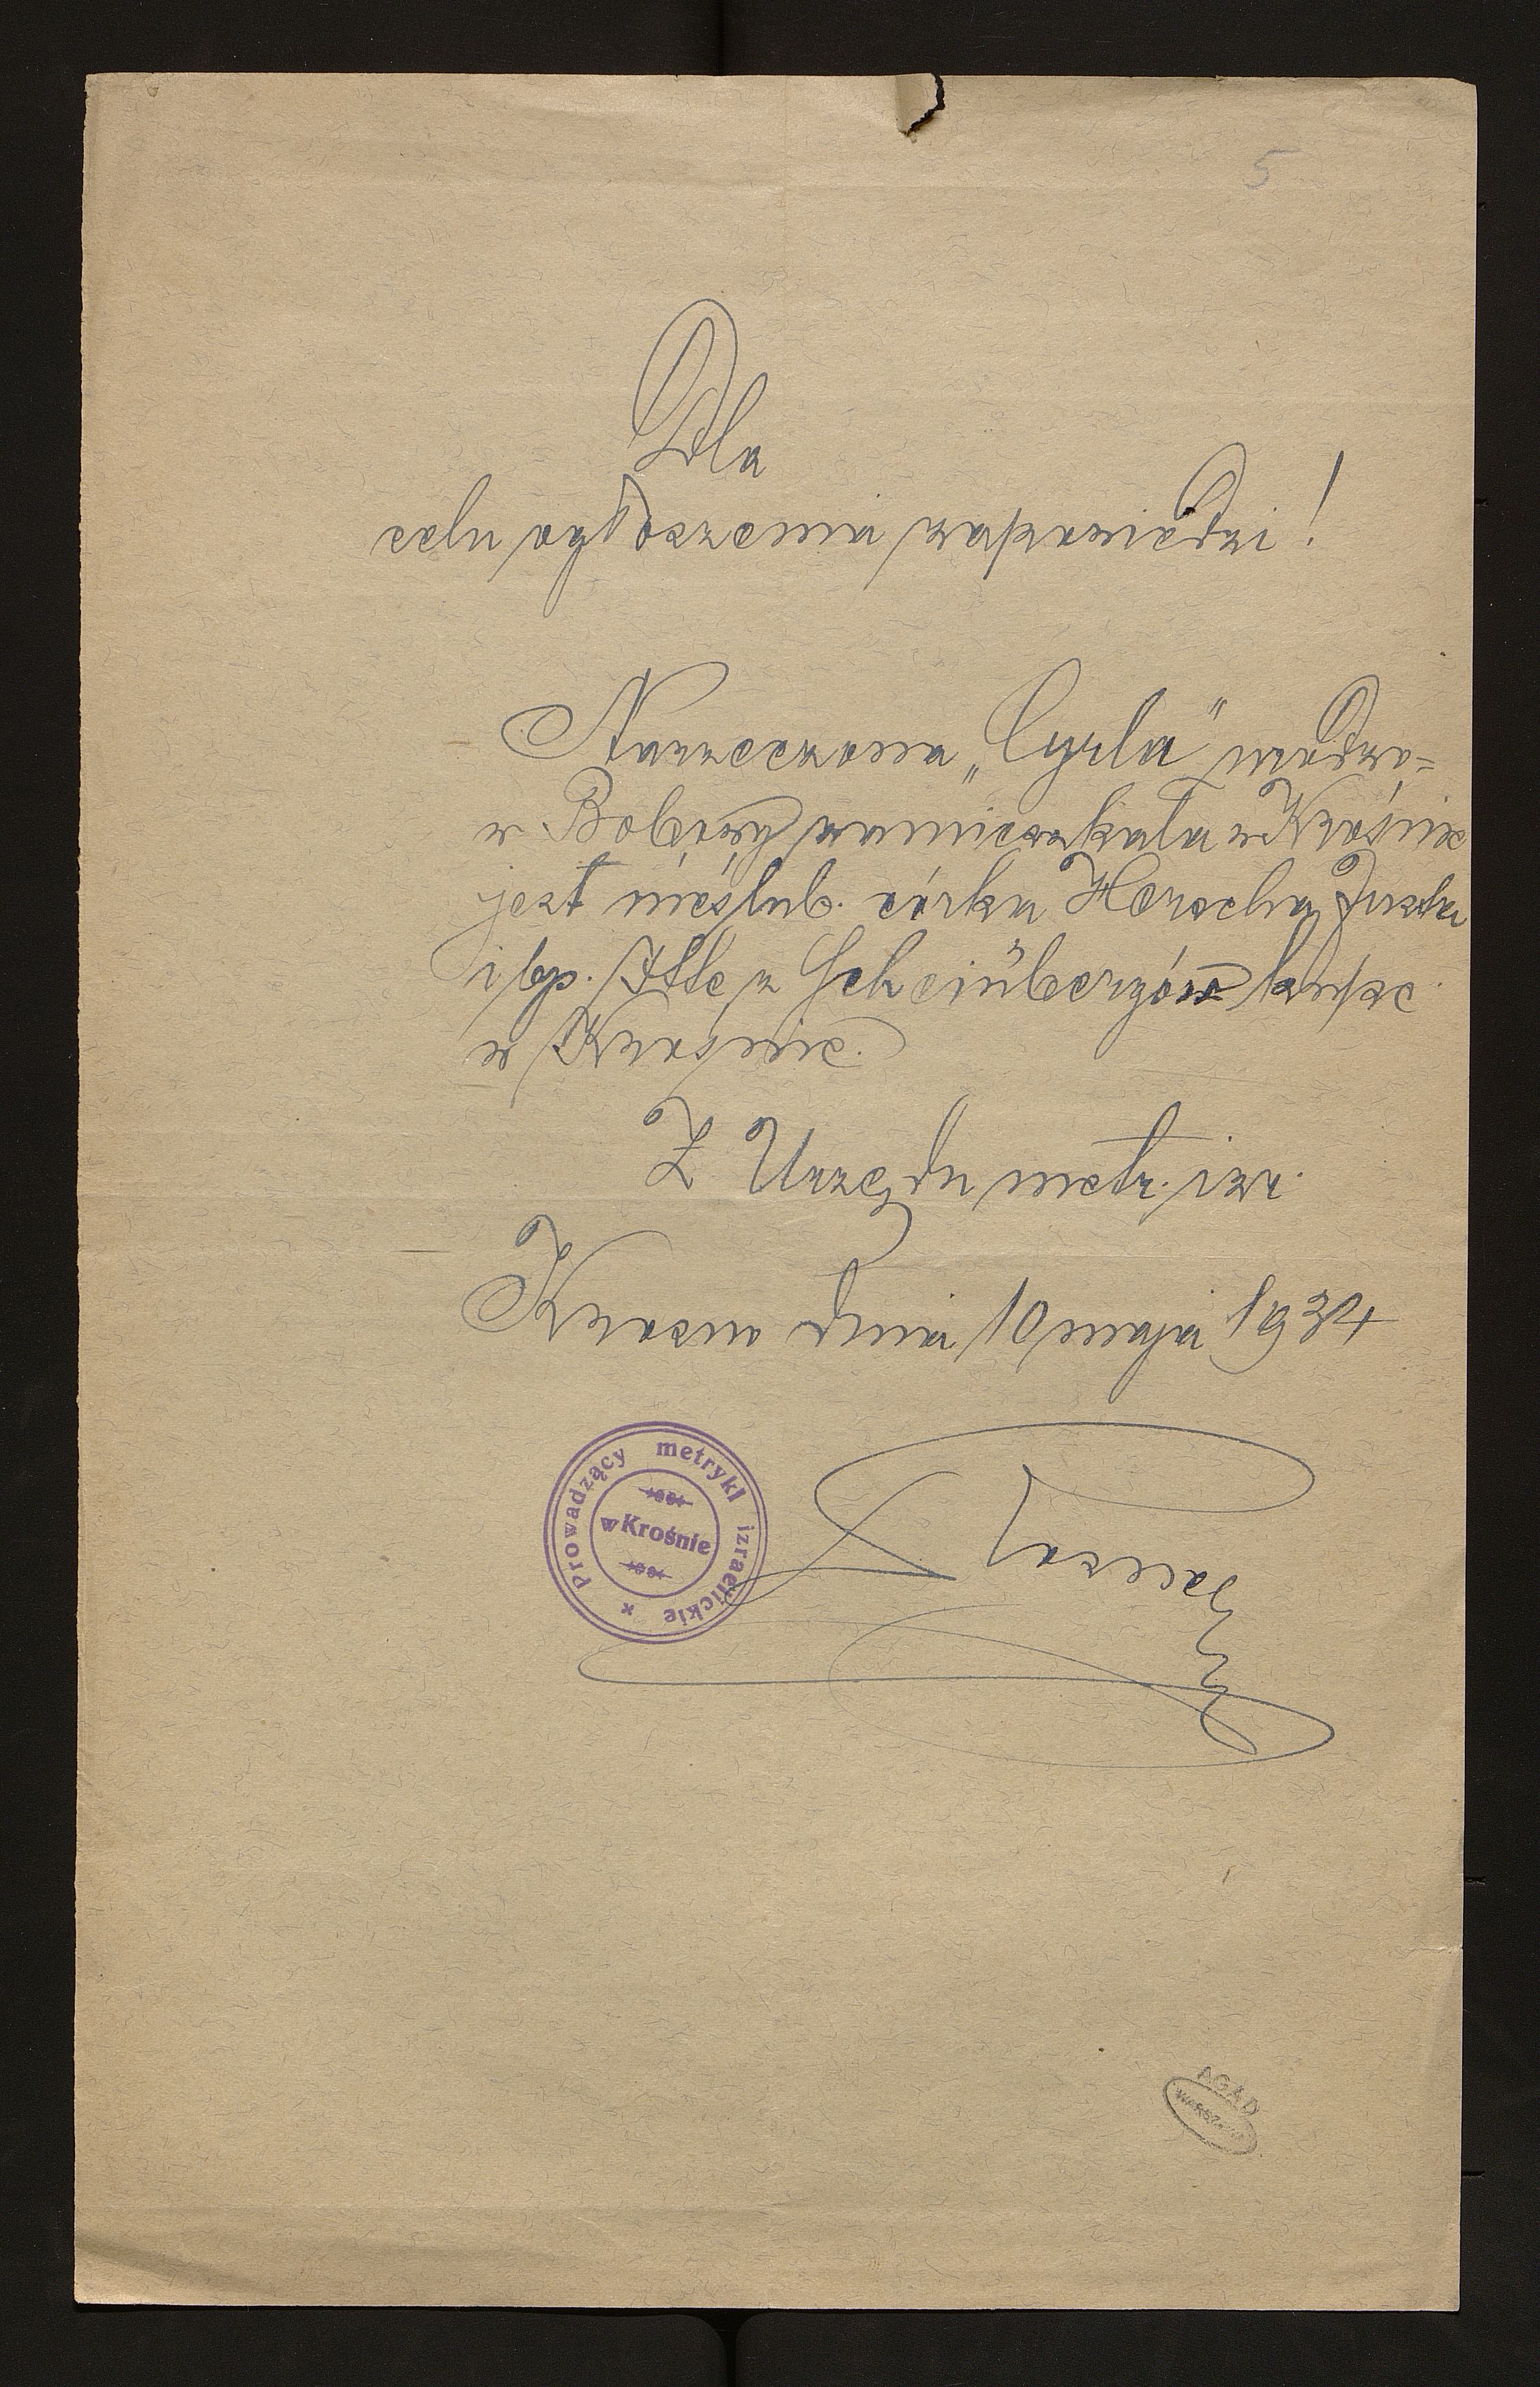 5
Dla
celu ogłoszenia zapowiedzi!
Narzeczona „Cyrla" urodzo=
w zamieszkała w Krośnie
jest córka Herscha
i Itte z Scheinbergów
w Krośnie.
Z Urzędu metr. izr.
Krosno dnia 10 maja
Prowadzący metryki izraelickie
w Krośnie
AGAD
WARSZAWA